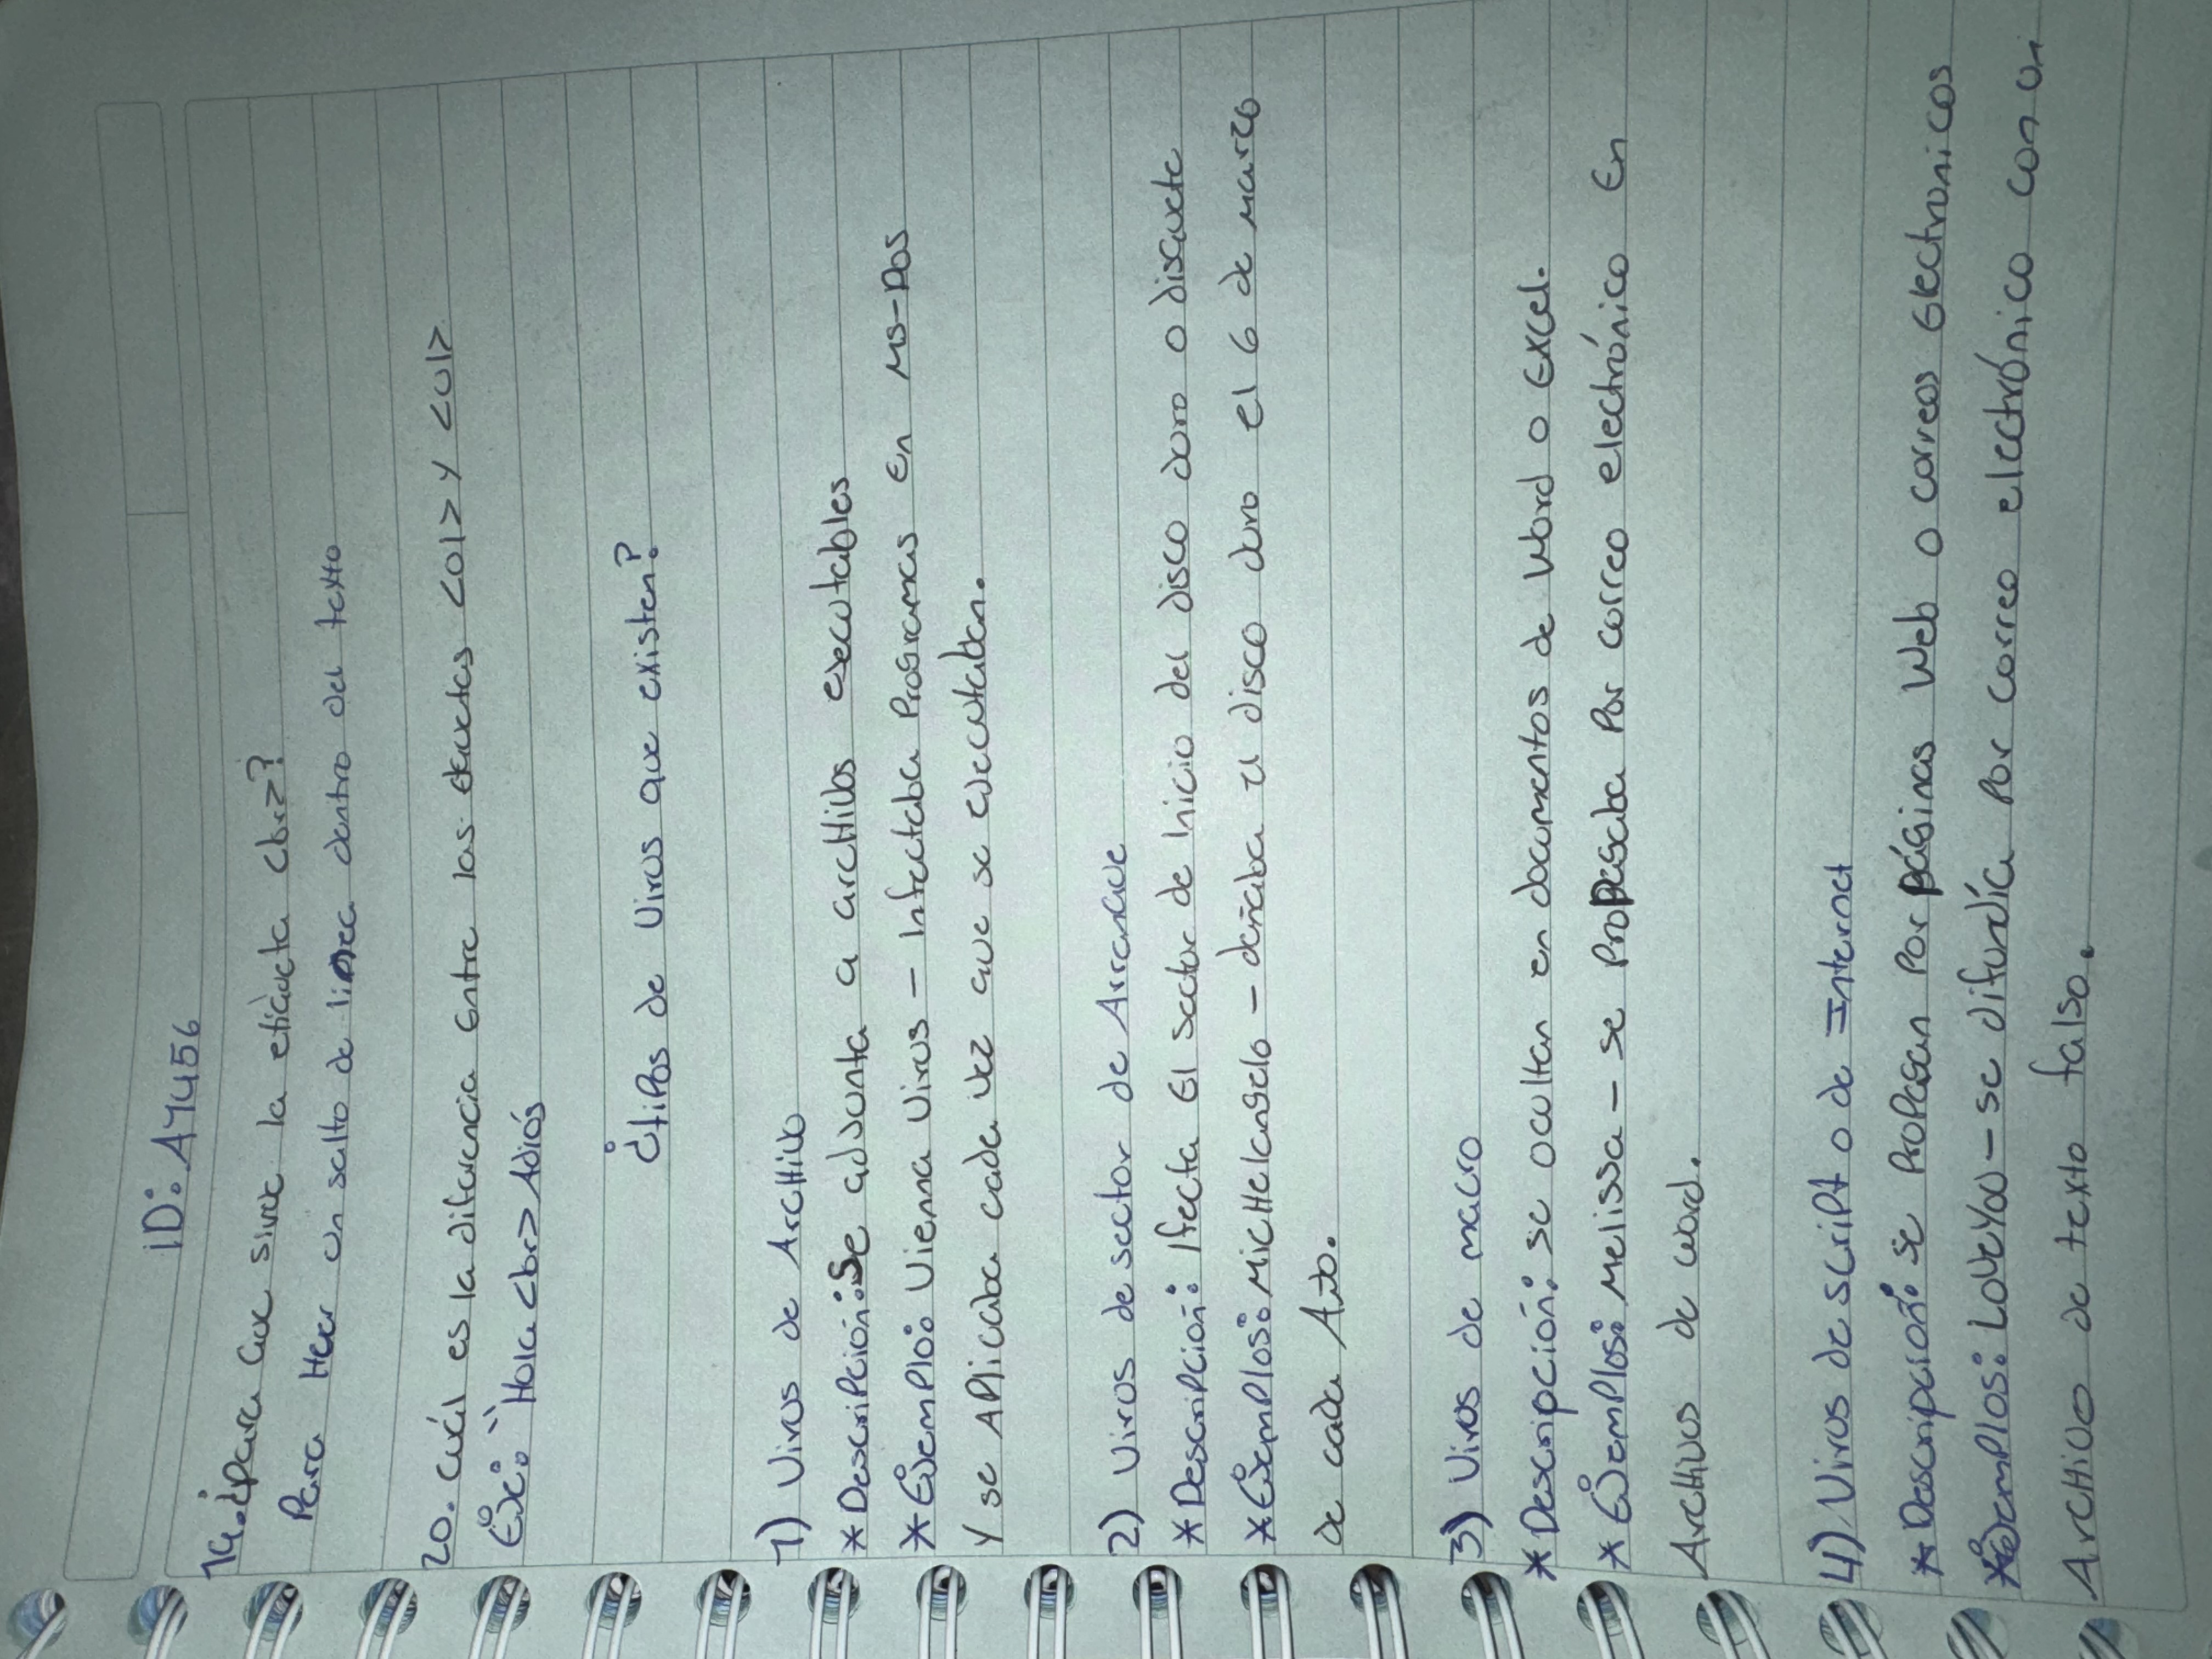 ID: A74456
19. ¿para que sirve la etiqueta <br>?
Para Hacer un salto de linea dentro del texto
20. cuál es la diferencia Entre las etiquetas <ol> y <ul>
EJe: "Hola <br> Adiós
¿tipos de Virus que existen?
1) Virus de Archivo
* Descripción: Se adjunta a archivos ejecutables
* EJemplo: Vienna Virus - Infectaba Programas En MS-DOS
Y se Aplicaba cada vez que se ejecutaban.
2) Virus de sector de Arranque
* Descripción: Ifecta El sector de Inicio del disco duro o disquete
* EJemplos: Michelangelo - dañaba el disco duro el 6 de marzo
de cada Año.
3) Virus de macro
* Descripción: se ocultan en documentos de Word o Excel.
* EJemplos: Melissa - se Propagaba Por correo electrónico En
Archivos de word.
4) Virus de script o de Internet
* Descripción: se Propagan Por páginas Web o correos Electronicos
* EJemplos: LoveYoo - se difundía Por correo electrónico con un
Archivo de texto falso.